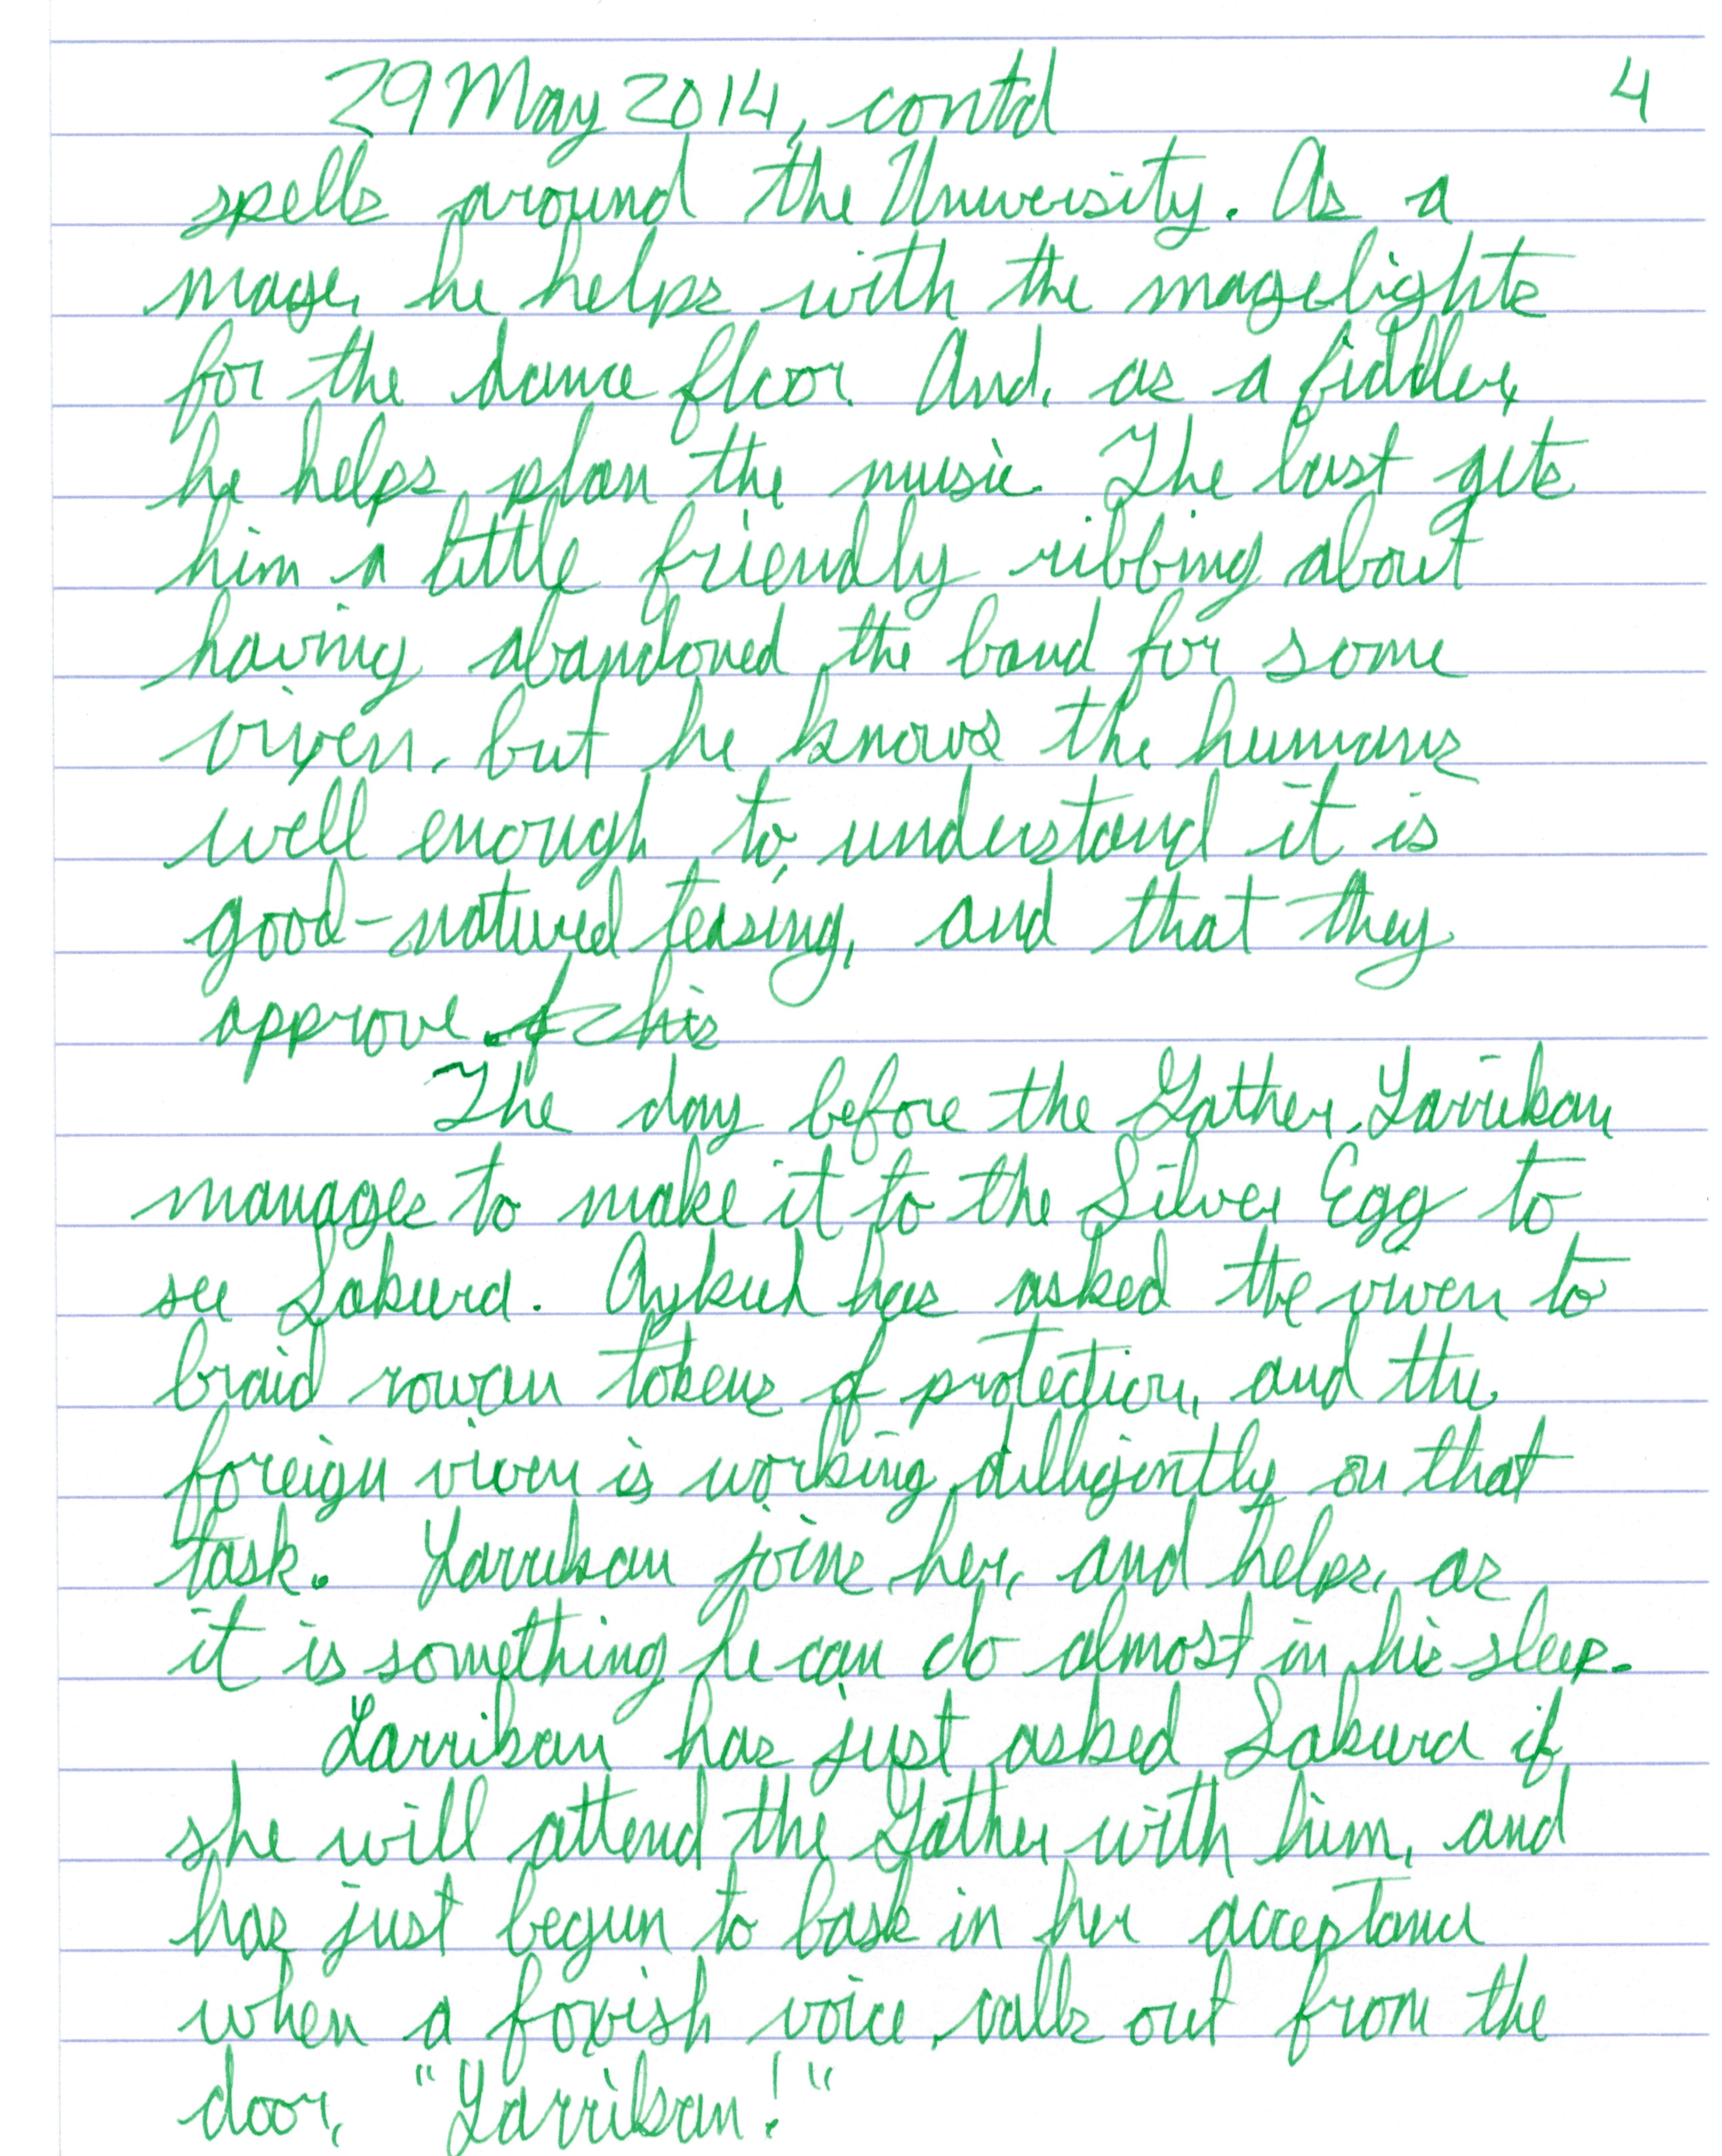 29 May 2014, contd 4
spells around the University. As a
mage, he helps with the magelights
for the dance floor. And, as a fiddler,
he helps plan the music. The last gets
him a little friendly ribbing about
having abandoned the band for some
vixen, but he knows the humans
well enough to understand it is
good-natured teasing, and that they
approve. of his
The day before the Gather, Larrikan
manages to make it to the Silver Egg to
see Sakura. Aykuh has asked the vixen to
braid rowan tokens of protection, and the
foreign vixen is working dilligently on that
task. Larrikan joins her, and helps, as
it is something he can do almost in his sleep.
Larrikan has just asked Sakura if
she will attend the Gather with him, and
has just begun to bask in her acceptance
when a foxish voice calls out from the
door, "Larrikan!"